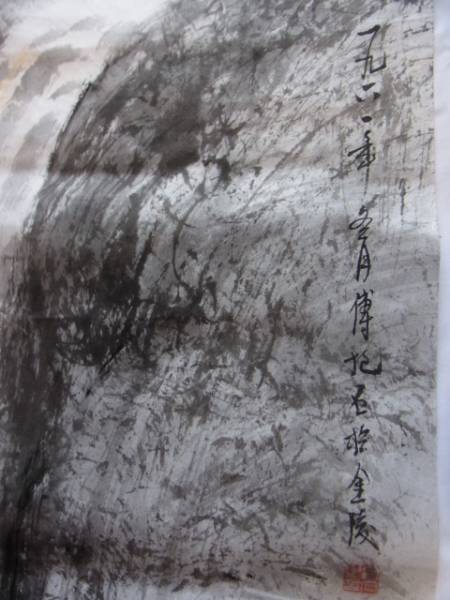 一九六一年冬月傅抱石於金陵